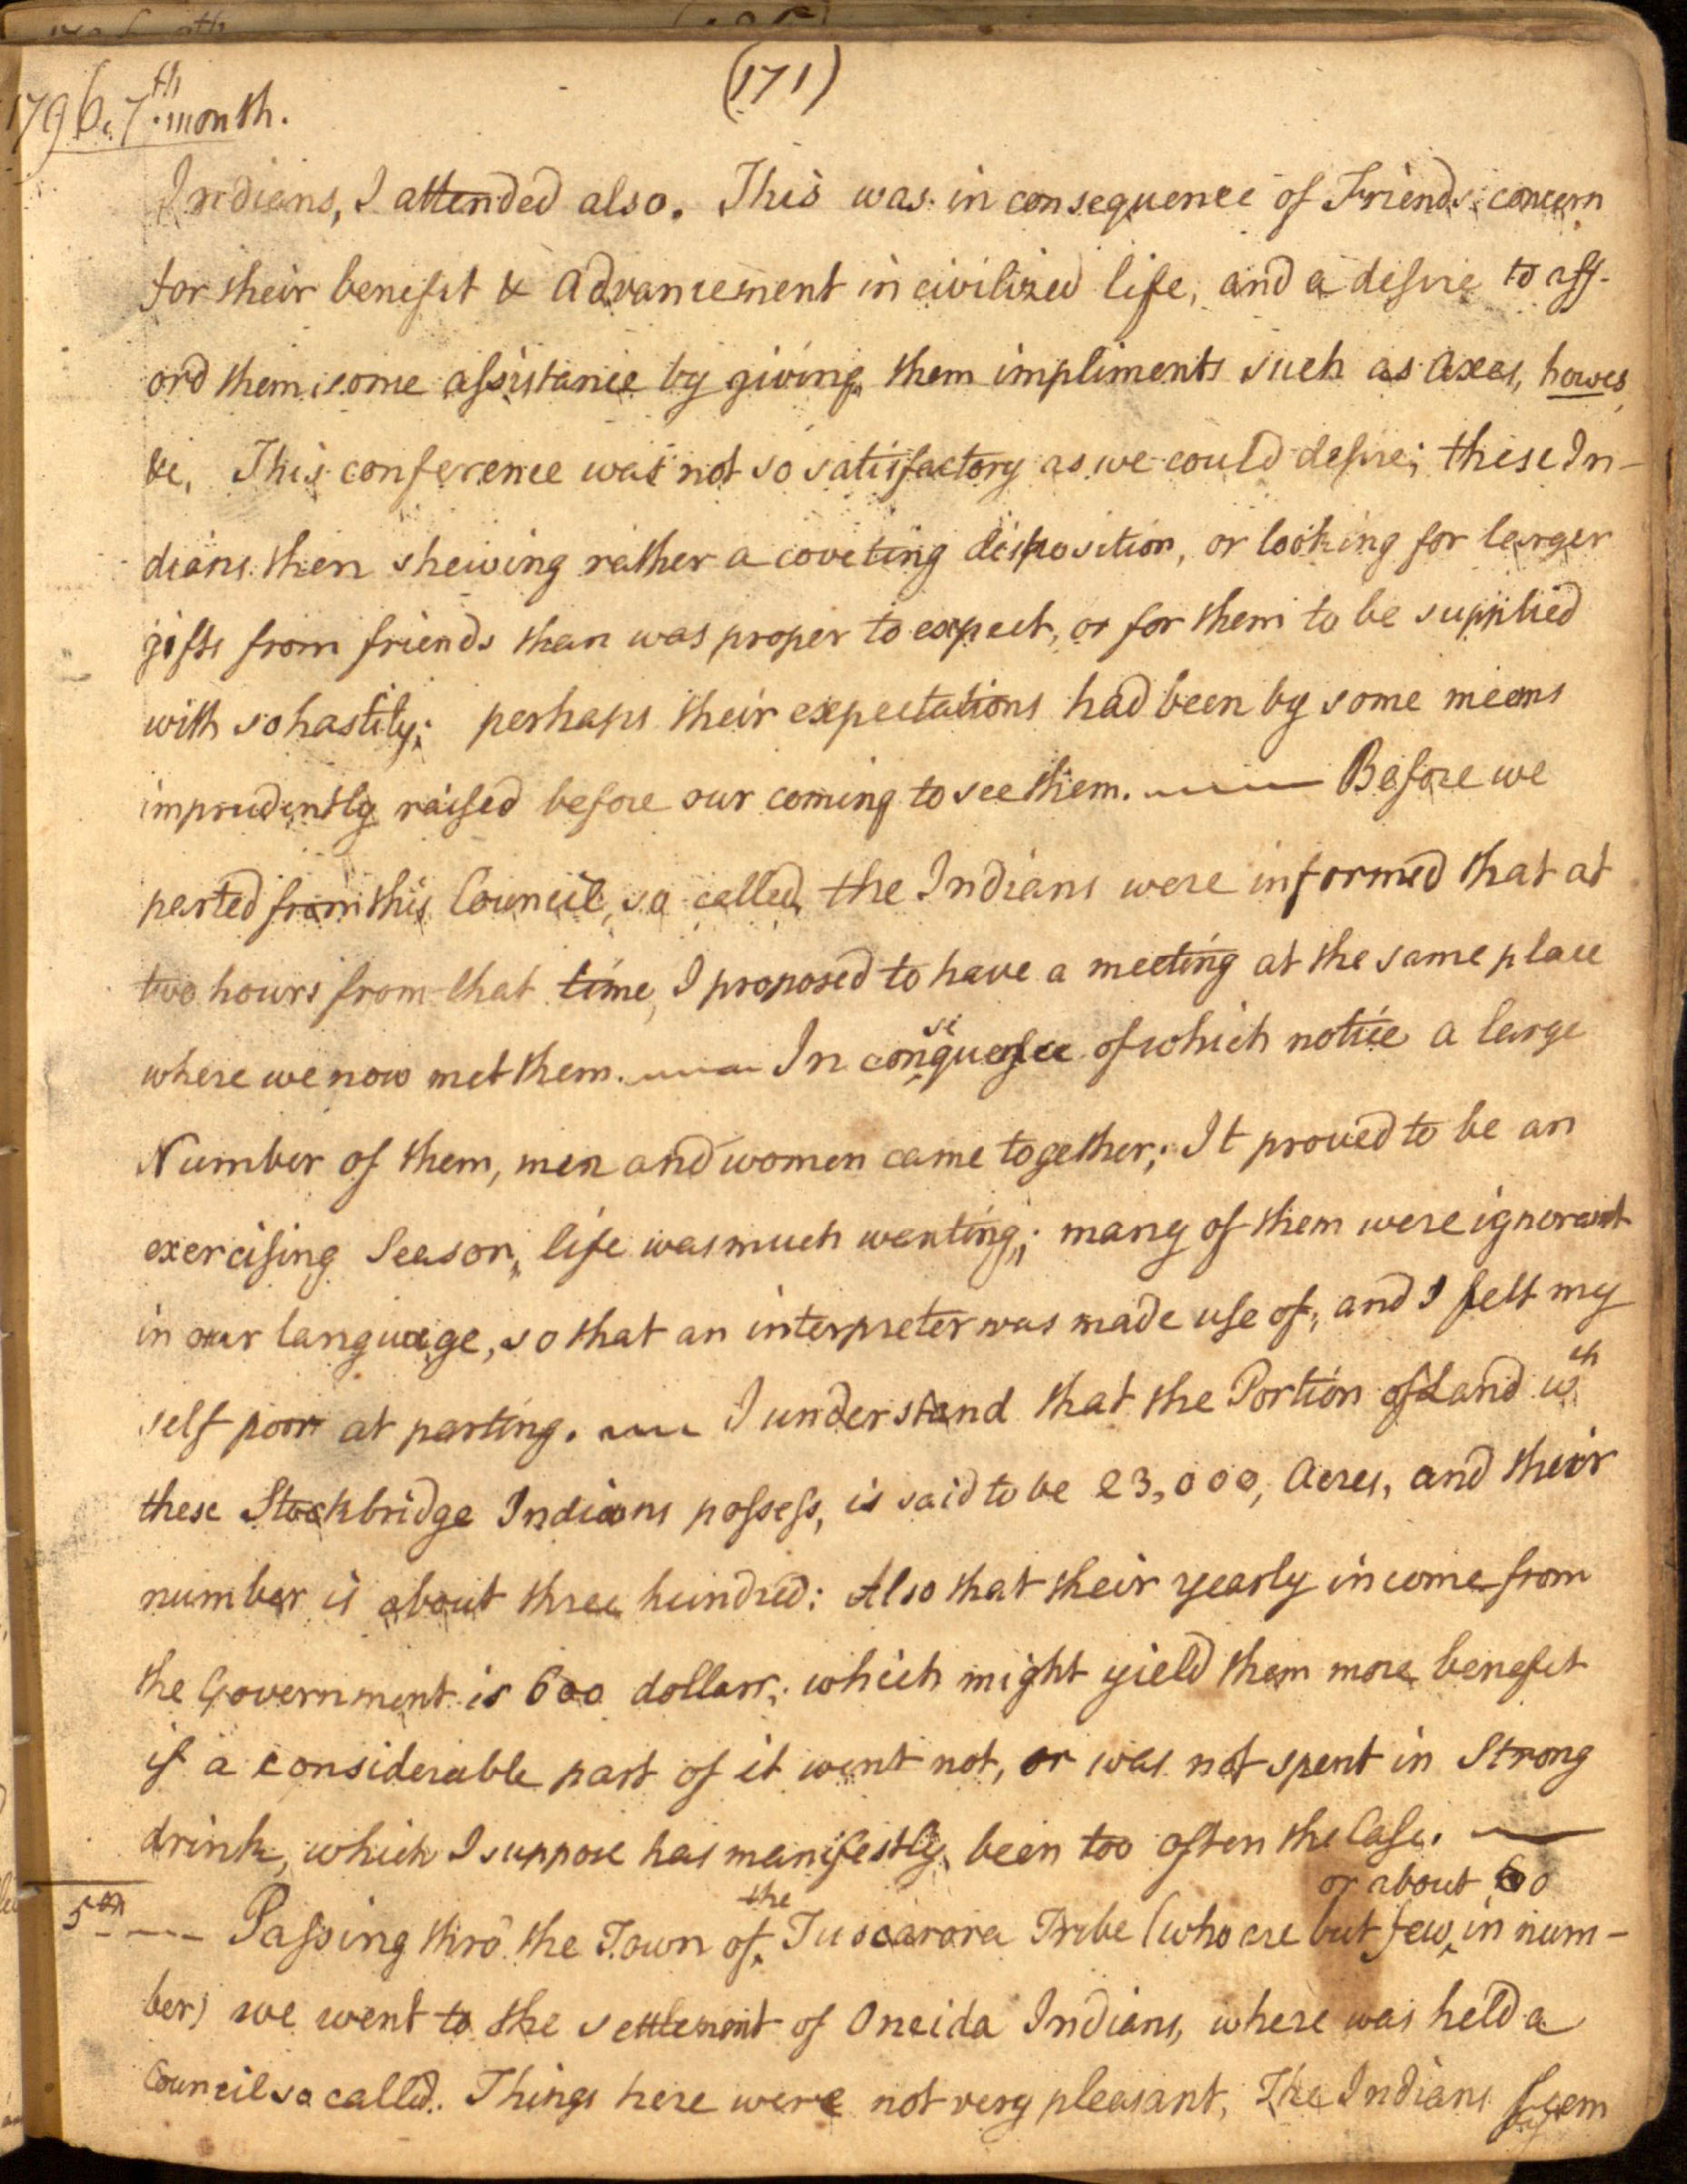 (171)
1796. 7th month.
Indians, I attended also. This was in consequence of Friends concern
for their benefit & advancement in civilized life, and a desire to aff-
ord them some assistance by giving them impliments such as axes, howes,
&c, This conference was not so satisfactory as we could desire; these In-
dians then shewing rather a coveting disposition, or looking for larger
gifts from friends than was proper to expect, or for them to be supplied
with so hastily; perhaps their expectations had been by some means
imprudently raised before our coming to see them. —— Before we
parted from this Council, so called, the Indians were informed that at
two hours from that time, I proposed to have a meeting at the same place
where we now met them. —— In consequence of which notice a large
Number of them, men and women came together; It proved to be an
exercising Season, life was much wanting; many of them were ignorant
in our language, so that an interpreter was made use of; and I felt my
self poor at parting. —— I understand that the Portion of Land wch
these Stockbridge Indians possess, is said to be 23,000, Acres, and their
number is about three hundred: Also that their yearly income from
the Government is 600 dollars; which might yield them more benefit
if a considerable part of it went not, or was not spent in Strong
drink, which I suppose has manifestly been too often the Case. ——
or about 60
5th —— Passing thro' the Town of the Tuscarora Tribe (who are but few in num-
ber) we went to the settlement of Oneida Indians, where was held a
Council so called. Things here were not very pleasant, The Indians seem